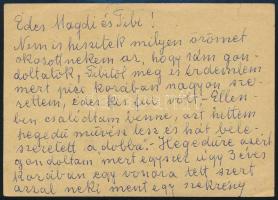 Édes Magdi és Tibi !
Nem is hiszitek milyen örömet
okozott nekem az, hogy rám gon-
doltatok, Tibitől meg is érdemlem
mert pici korában nagyon sze-
rettem, édes kis fiú volt. - Ellen-
ben csalódtam benne, azt hittem
hegedű művész lesz és hát bele-
szeretett a dobba. - Hegedűre azért
gondoltam mert egyszer úgy 3 éves
korában egy vonóra tett szert
azzal neki ment egy szekrény